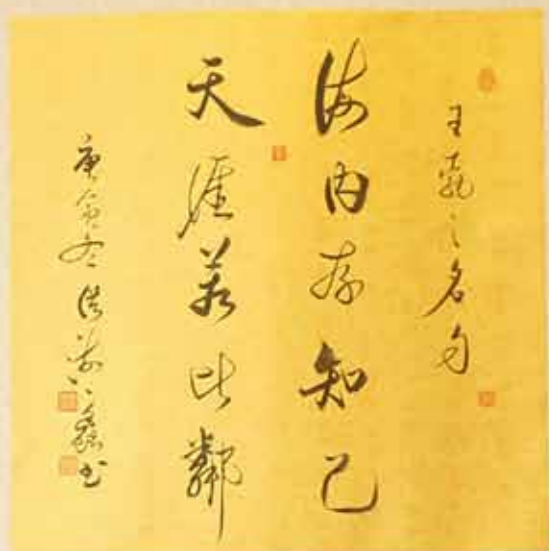 王勃之名句
海内存知己
天涯若比鄰
庚寅冬 书